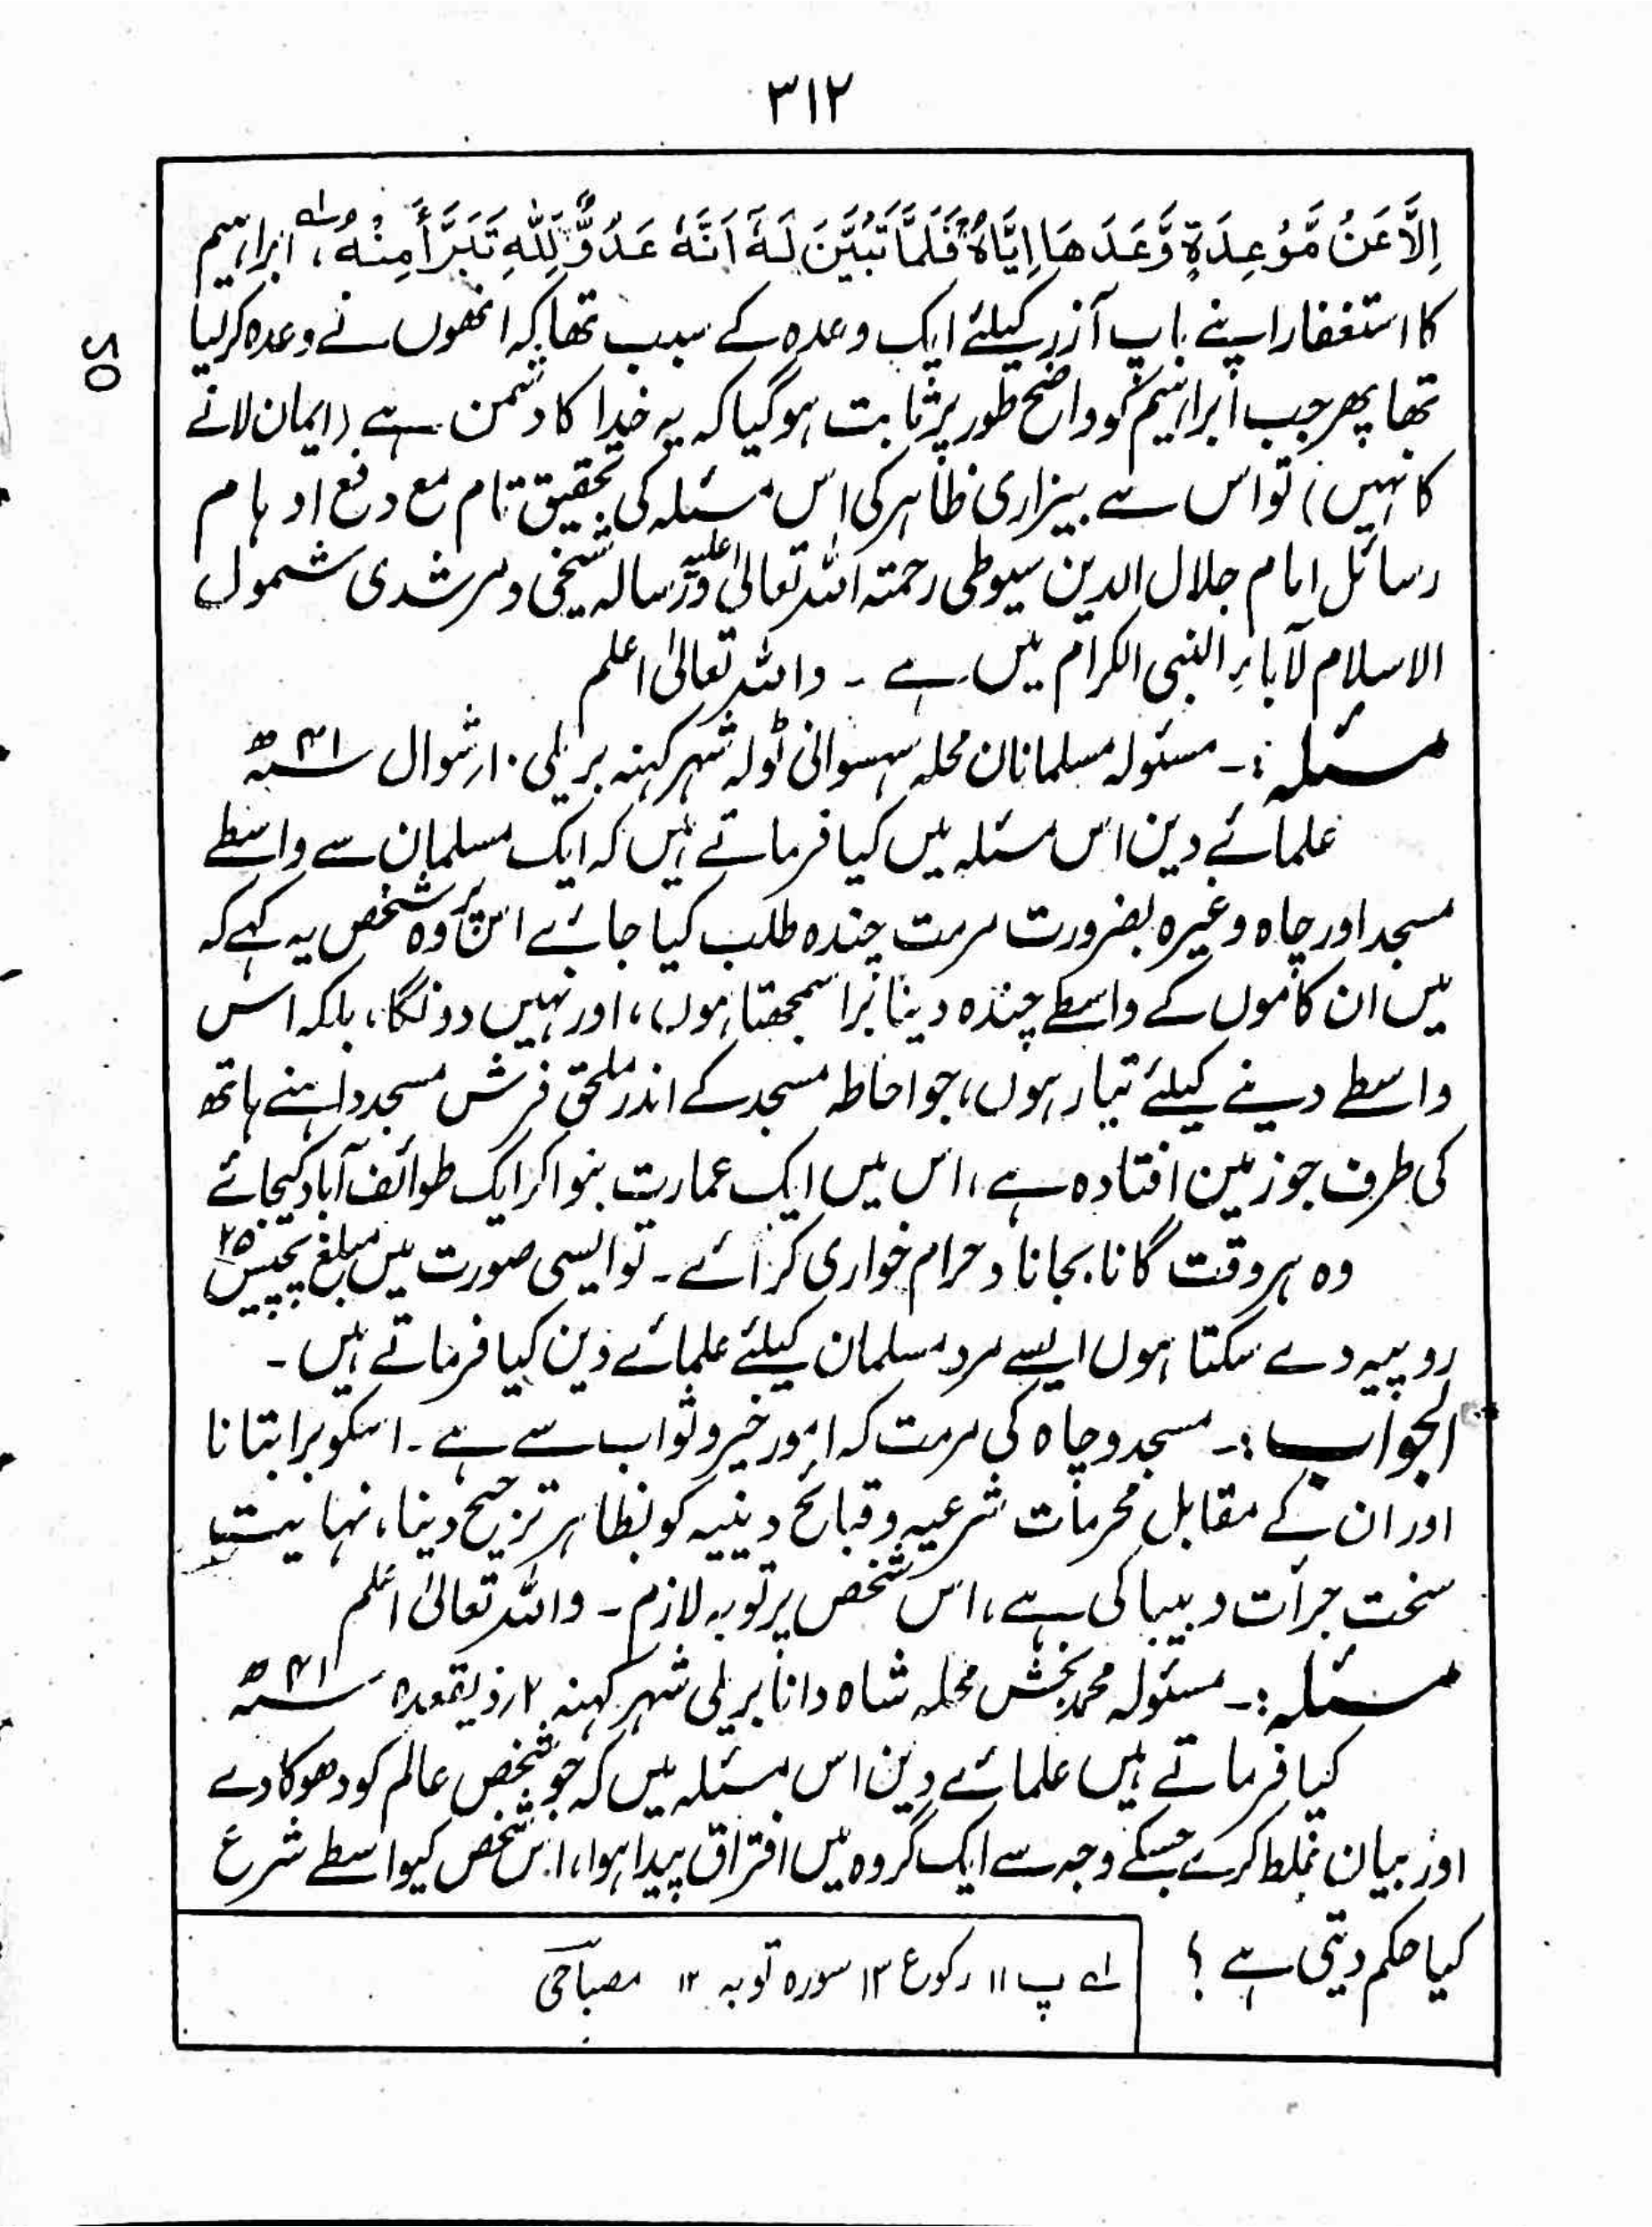 ۳۱۲
اِلَّا عَنْ مَّوْعِدَةٍ وَّعَدَهَا اِيَّاهُ فَلَمَّا تَبَيَّنَ لَهٗ اَنَّهٗ عَدُوٌّ لِّلّٰهِ تَبَرَّأَ مِنْهُ ۱؎، ابراہیم
کا استغفار اپنے باپ آزر کیلئے ایک وعدہ کے سبب تھا کہ انھوں نے وعدہ کر لیا
تھا پھر جب ابراہیم کو واضح طور پر ثابت ہو گیا کہ یہ خدا کا دشمن ہے (ایمان لانے
کا نہیں) تو اس سے بیزاری ظاہر کی اس مسئلہ کی تحقیق تام مع دفع اوہام
رسائل امام جلال الدین سیوطی رحمتہ اللہ تعالیٰ علیہ ورسالہ شیخی ومرشدی شمول
الاسلام لآباءِ النبی الکرام میں ہے ۔ واللہ تعالیٰ اعلم
مسئلہ :۔ مسئولہ مسلمانان محلہ سہسوانی ٹولہ شہر کہنہ بریلی ۱۰ر شوال ۴۱ سنہ ھ
علمائے دین اس مسئلہ میں کیا فرماتے ہیں کہ ایک مسلمان سے واسطے
مسجد اور چاہ وغیرہ بضرورت مرمت چندہ طلب کیا جائے اس پر وہ شخص یہ کہے کہ
میں ان کاموں کے واسطے چندہ دینا برا سمجھتا ہوں، اور نہیں دونگا، بلکہ اس
واسطے دینے کیلئے تیار ہوں، جو احاطہ مسجد کے اندر ملحق فرش مسجد داہنے ہاتھ
کی طرف جو زمین افتادہ ہے، اس میں ایک عمارت بنوا کر ایک طوائف آباد کیجائے
وہ ہر وقت گانا بجانا و حرام خواری کرائے ۔ تو ایسی صورت میں مبلغ پچیس ۲۵
روپیہ دے سکتا ہوں ایسے مرد مسلمان کیلئے علمائے دین کیا فرماتے ہیں ۔
الجواب :۔ مسجد و چاہ کی مرمت کہ امور خیر و ثواب سے ہے ۔ اسکو برا بتانا
اور ان کے مقابل محرمات شرعیہ و قبائح دینیہ کو بظاہر ترجیح دینا، نہایت
سخت جرأت و بیباکی ہے، اس شخص پر توبہ لازم ۔ واللہ تعالیٰ اعلم
مسئلہ :۔ مسئولہ محمد بخش محلہ شاہ دانا بریلی شہر کہنہ ۲ر ذیقعدہ ۴۱ سنہ ھ
کیا فرماتے ہیں علمائے دین اس مسئلہ میں کہ جو شخص عالم کو دھوکا دے
اور بیان غلط کرے جسکے وجہ سے ایک گروہ میں افتراق پیدا ہوا، اس شخص کیواسطے شرع
کیا حکم دیتی ہے ؟
۱؎ پ ۱۱ رکوع ۱۳ سورہ توبہ ۱۲ مصباحی